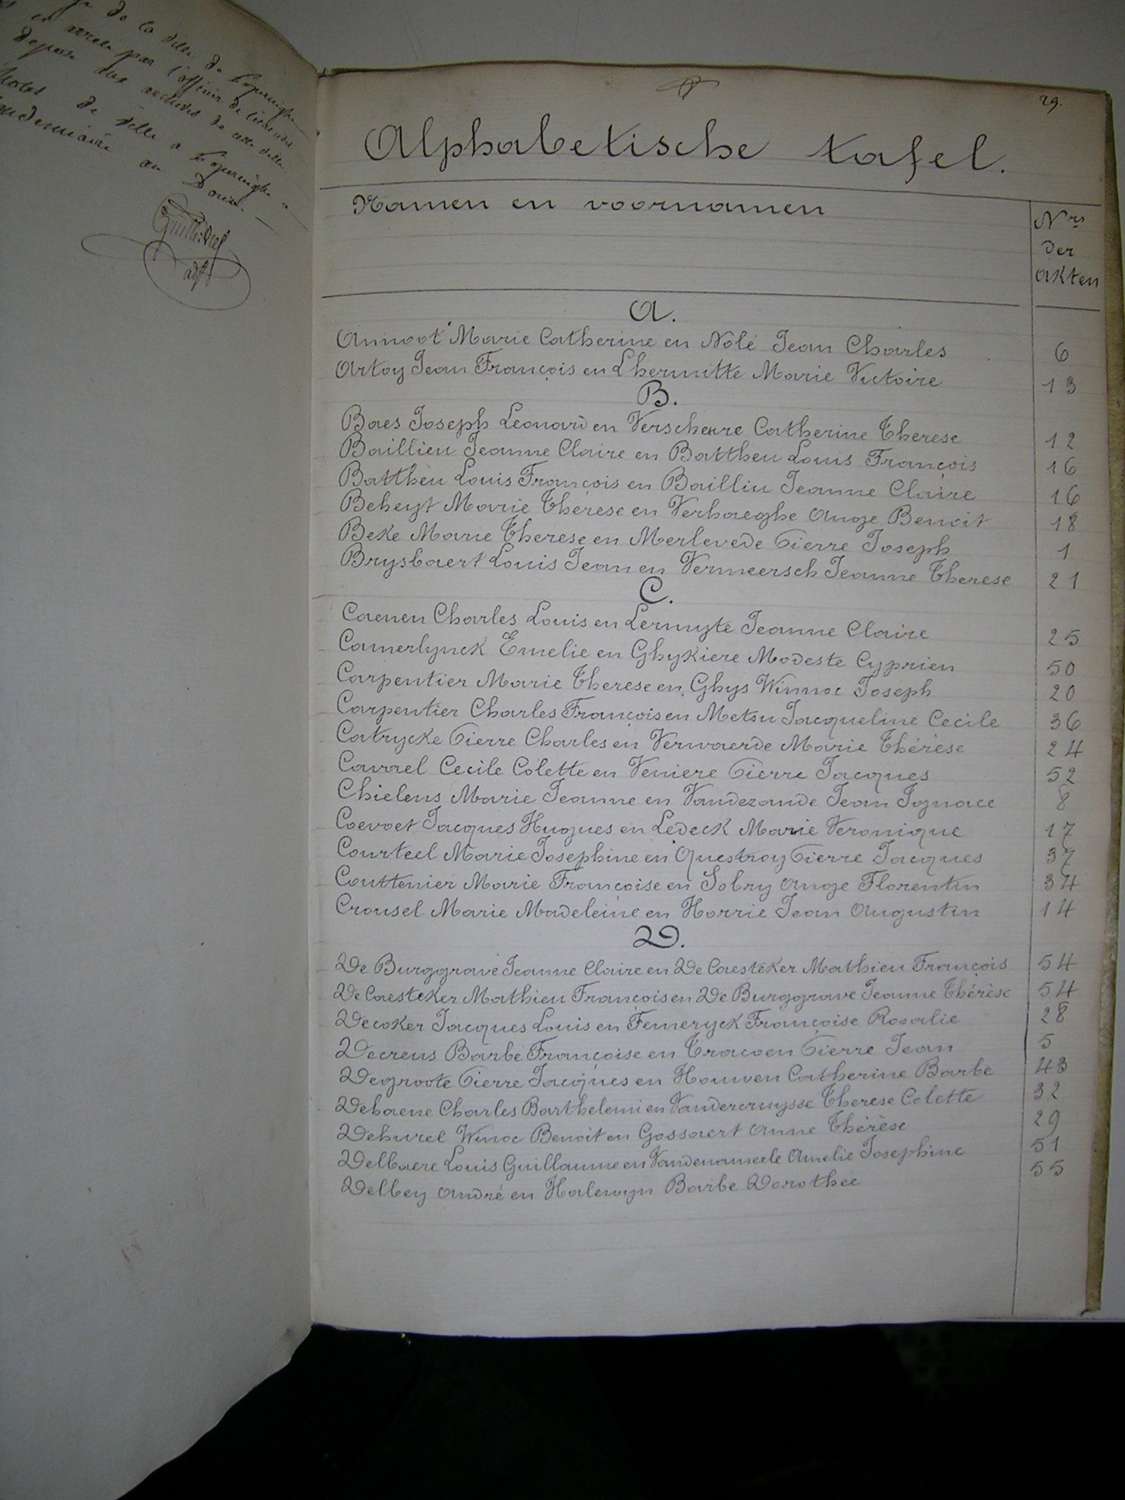 de la ville de Poperinghe
par l'officier de l'état civil
archives de cette ville
de ville a Poperinghe
an Douze.
29.
Alphabetische tafel.
Namen en voornamen
Nrs
der
akten
A.
Annoot Marie Catherine en Nolé Jean Charles 6
Artoy Jean François en Lhermitte Marie Victoire 13
B.
Baes Joseph Leonard en Verscheure Catherine Therese 12
Baillieu Jeanne Claire en Battheu Louis François 16
Battheu Louis François en Baillieu Jeanne Claire 16
Beheyt Marie Thérèse en Verhaeghe Ange Benoit 18
Beke Marie Therese en Merlevede Pierre Joseph 1
Brysbaert Louis Jean en Vermeersch Jeanne Therese 21
C.
Caenen Charles Louis en Lermyte Jeanne Claire 25
Camerlynck Emelie en Ghykiere Modeste Cyprien 50
Carpentier Marie Therese en Ghys Winnoc Joseph 20
Carpentier Charles François en Metsu Jacqueline Cecile 36
Catrycke Pierre Charles en Verwaerde Marie Thérèse 24
Cavael Cecile Colette en Veniere Pierre Jacques 52
Chielens Marie Jeanne en Vandezande Jean Ignace 8
Coevoet Jacques Hugues en Ledeck Marie Veronique 17
Courteel Marie Josephine en Questroy Pierre Jacques 37
Couttenier Marie Françoise en Sobry Ange Florentin 34
Crousel Marie Madeleine en Horrie Jean Augustin 14
D.
De Burggrave Jeanne Claire en De Caesteker Mathieu François 54
De Caesteker Mathieu Francois en De Burggrave Jeanne Thérèse 54
Decoker Jacques Louis en Femeryck Françoise Rosalie 28
Decreus Barbe Françoise en Tracoen Pierre Jean 5
Degroote Pierre Jacques en Houwen Catherine Barbe 43
Dehaene Charles Barthelemi en Vandercruysse Therese Colette 32
Dehurel Winoc Benoit en Gossaert Anne Thérèse 29
Delbaere Louis Guillaume en Vandenameele Amelie Josephine 51
Delbey André en Halewyn Barbe Dorothee 55